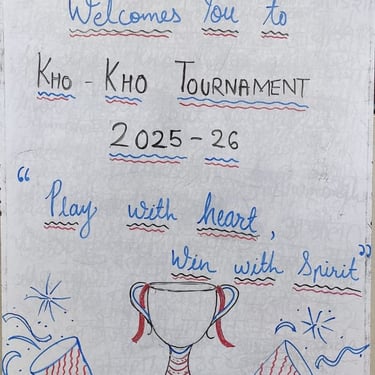 Welcomes You to
KHO - KHO TOURNAMENT
2025-26
"Play with heart,
Win with Spirit"